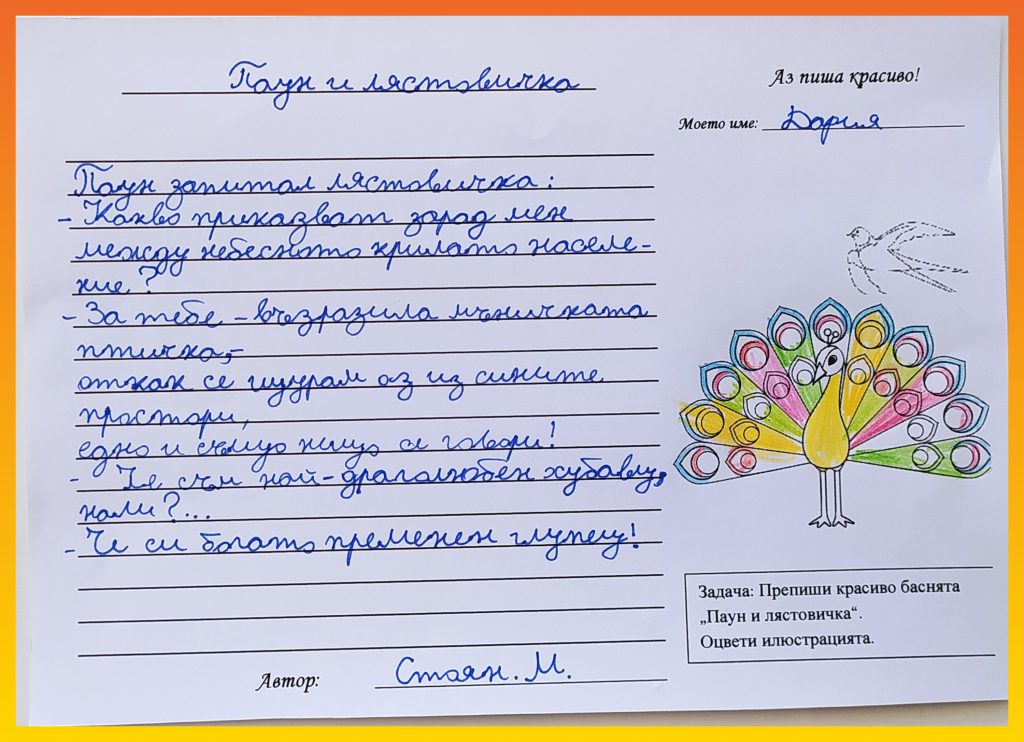 Паун и лястовичка
Аз пиша красиво!
Моето име: Дария
Паун запитал лястовичка:
- Какво приказват зарад мен
между небесното крилато населе-
ние?
- За тебе - възразила мъничката
птичка,-
откак се щурам аз из сините
простори,
едно и също нещо се говори!
- Че съм най-драголюбен хубавец,
нали?...
- Че си богато пременен глупец!
Задача: Препиши красиво баснята
„Паун и лястовичка“.
Оцвети илюстрацията.
Автор: Стоян. М.